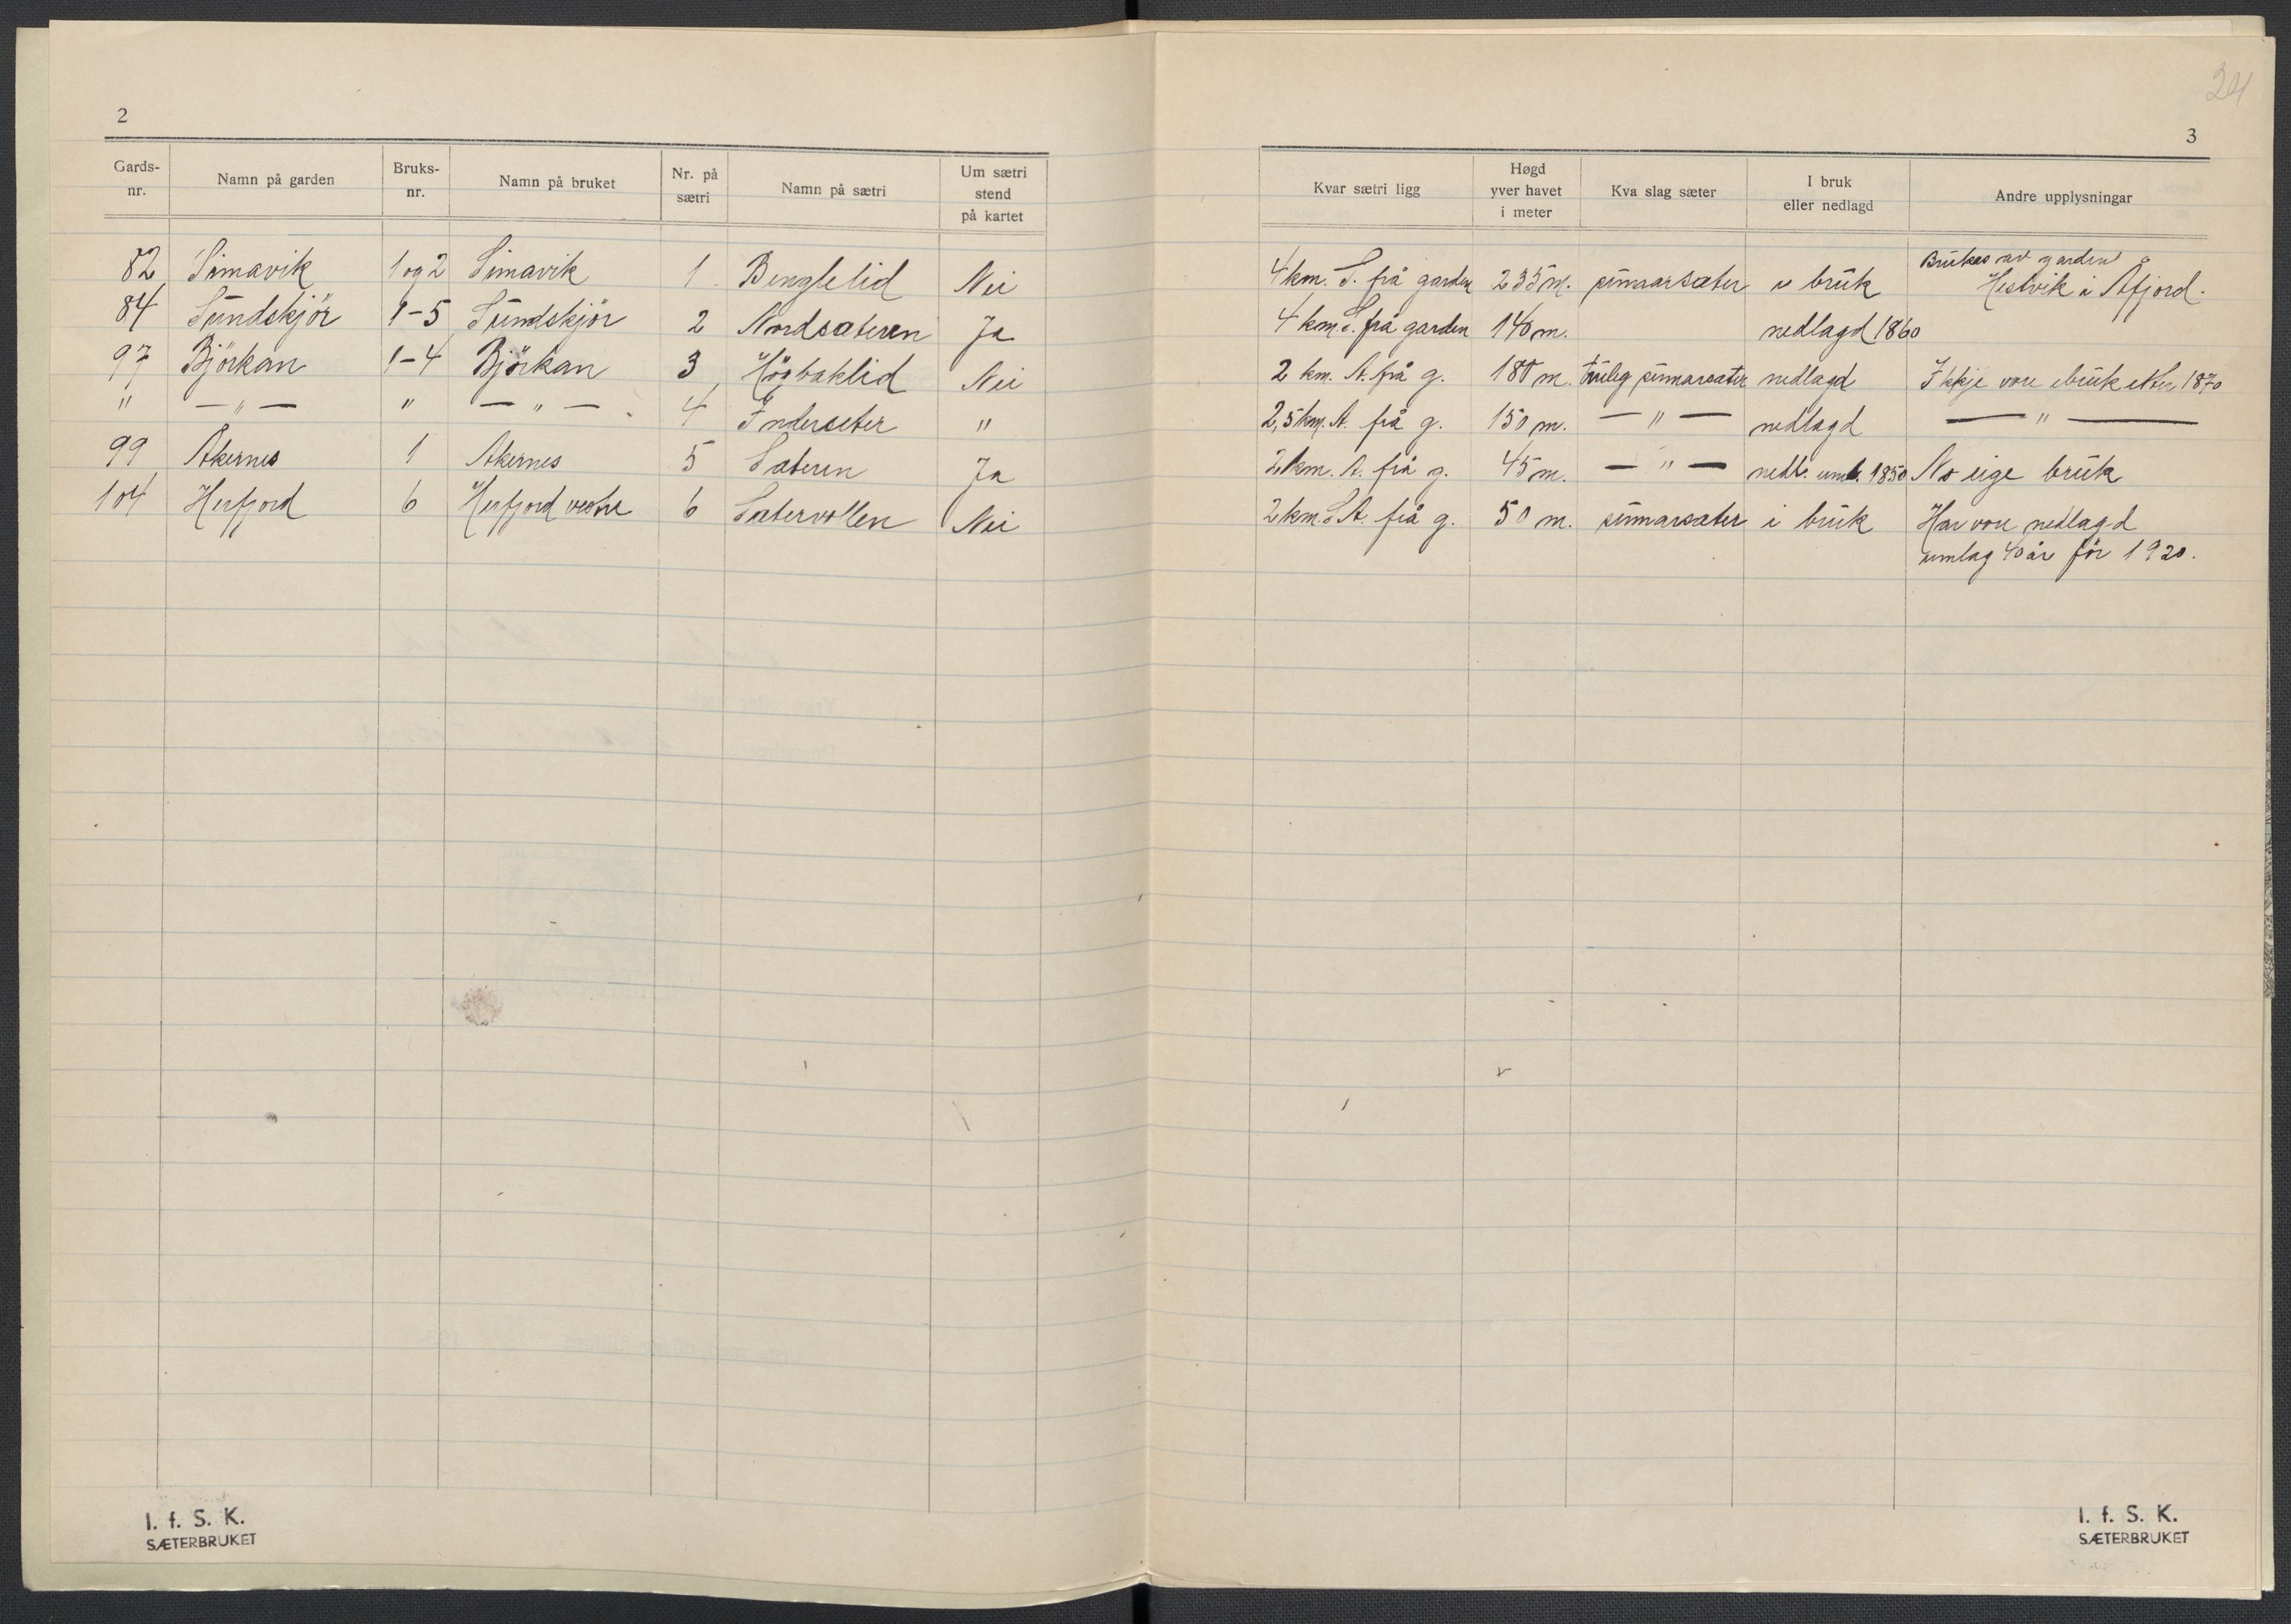 2
Gards-nr. Namn på garden Bruks-nr. Namn på bruket Nr. på sætri Namn på sætri Um sætri stend på kartet
82 Simavik 1 og 2 Simavik 1 Benglelid Nei
84 Sundskjör 1-5 Sundskjör 2 Nordsæteren Ja
97 Björkan 1-4 Björkan 3 Högbaklid Nei
" — " — " — " — 4 Inderseter "
99 Åkernes 1 Åkernes 5 Sæteren Ja
104 Herfjord 6 Herfjord vestre 6 Sætervollen Nei
I. f. S. K.
SÆTERBRUKET
3
Kvar sætri ligg Høgd yver havet i meter Kva slag sæter I bruk eller nedlagd Andre upplysningar
4 km. S. frå garden 235 m. sumarsæter i bruk Brukes av garden
Hestvik i Åfjord.
4 km S. frå garden 140 m. nedlagd 1860
2 km. A. frå g. 180 m. truleg sumarsæter nedlagd Ikkje vore i bruk etter 1870
2,5 km. A. frå g. 150 m. — " — nedlagd — " —
2 km. A. frå g. 45 m. — " — nedl. uml. 1850 No eige bruk
2 km. S.A. frå g. 50 m. sumarsæter i bruk Har vore nedlagd
umlag 40 år för 1920.
I. f. S. K.
SÆTERBRUKET